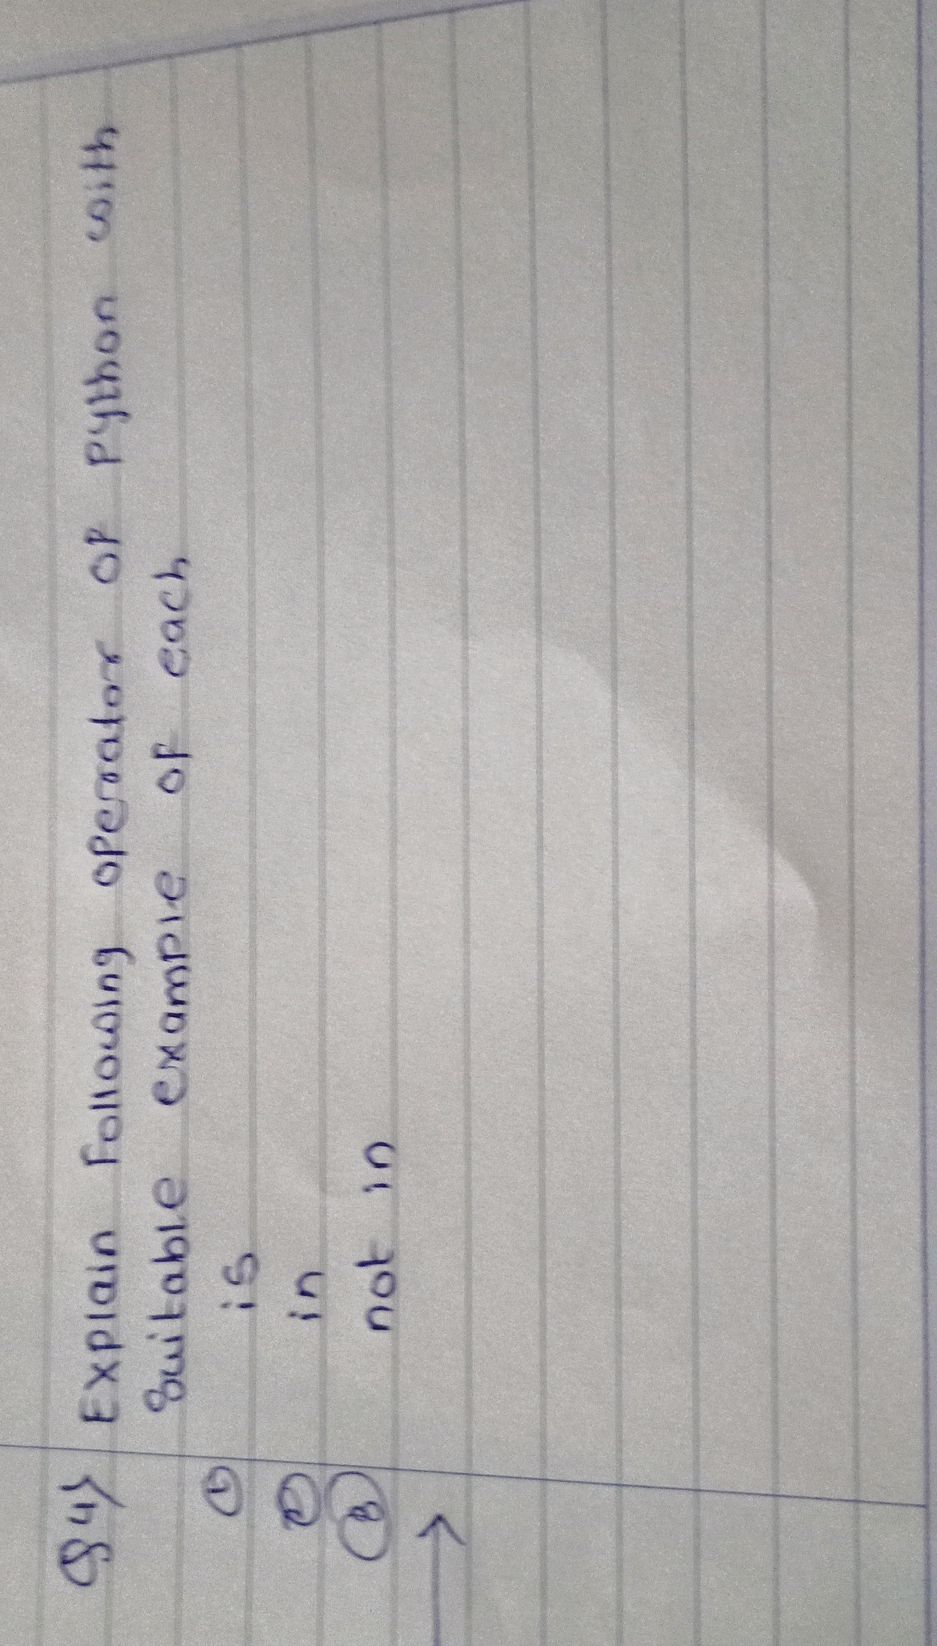 Q4) Explain Following operator of python with
Suitable example of each
① is
② in
③ not in
→